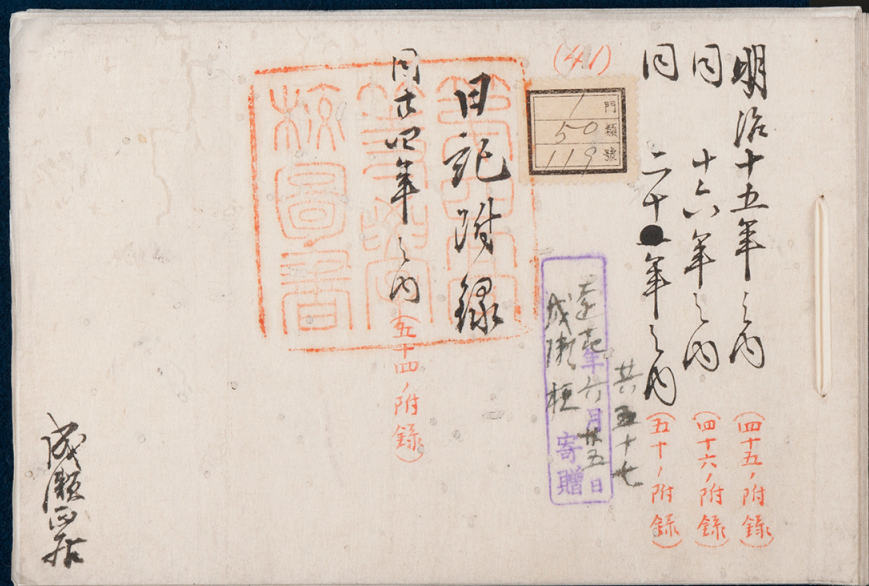 明治十五年之内(四十五ノ附録)
同 十六年之内(四十六ノ附録)
同 二十 年之内(五十ノ附録)
共五十七
(41)
門 1
類 50
號 119
年六月廿五日
成瀬 寄贈
日記附録
同廿四年之内(五十四ノ附録)
第四高等中學校圖書
成瀬正居